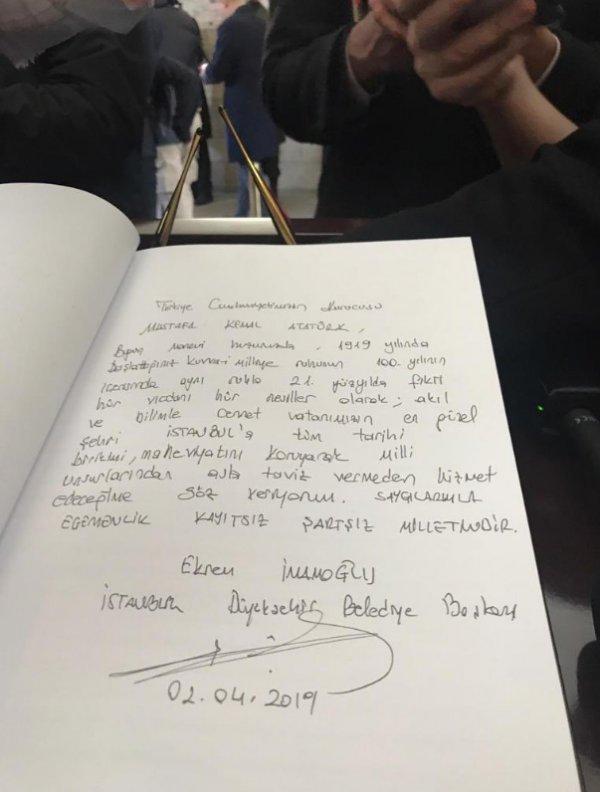 Türkiye Cumhuriyetimizin Kurucusu
MUSTAFA KEMAL ATATÜRK,
manevi huzurunda, 1919 yılında
başlattığınız kuvayi milliye ruhunun 100. yılının
içerisinde aynı ruhla 21. yüzyılda fikri
hür vicdanı hür nesiller olarak; akıl
ve bilimle cennet vatanımızın en güzel
şehri İSTANBUL'a tüm tarihi
birikimi, maneviyatını koruyarak milli
unsurlarından asla taviz vermeden hizmet
edeceğime söz veriyorum. SAYGILARIMLA
EGEMENLİK KAYITSIZ ŞARTSIZ MİLLETİNDİR.
Ekrem İMAMOĞLU
İSTANBUL Büyükşehir Belediye Başkanı
02.04.2019